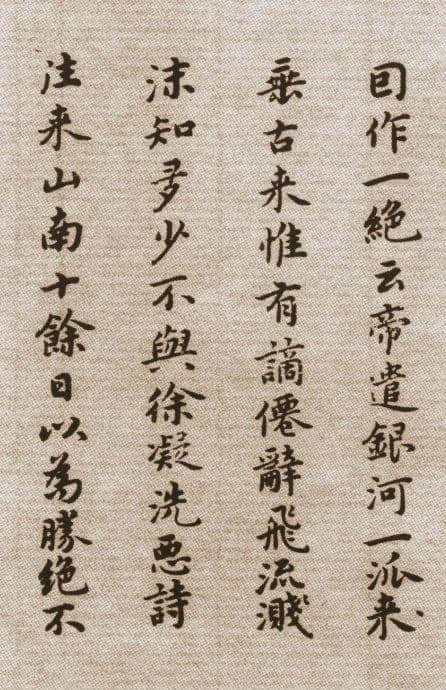 囙作一絕云帝遣銀河一派来
垂古来惟有謫僊辭飛流濺
沫知多少不與徐凝洗悪詩
往来山南十餘日以為勝絕不